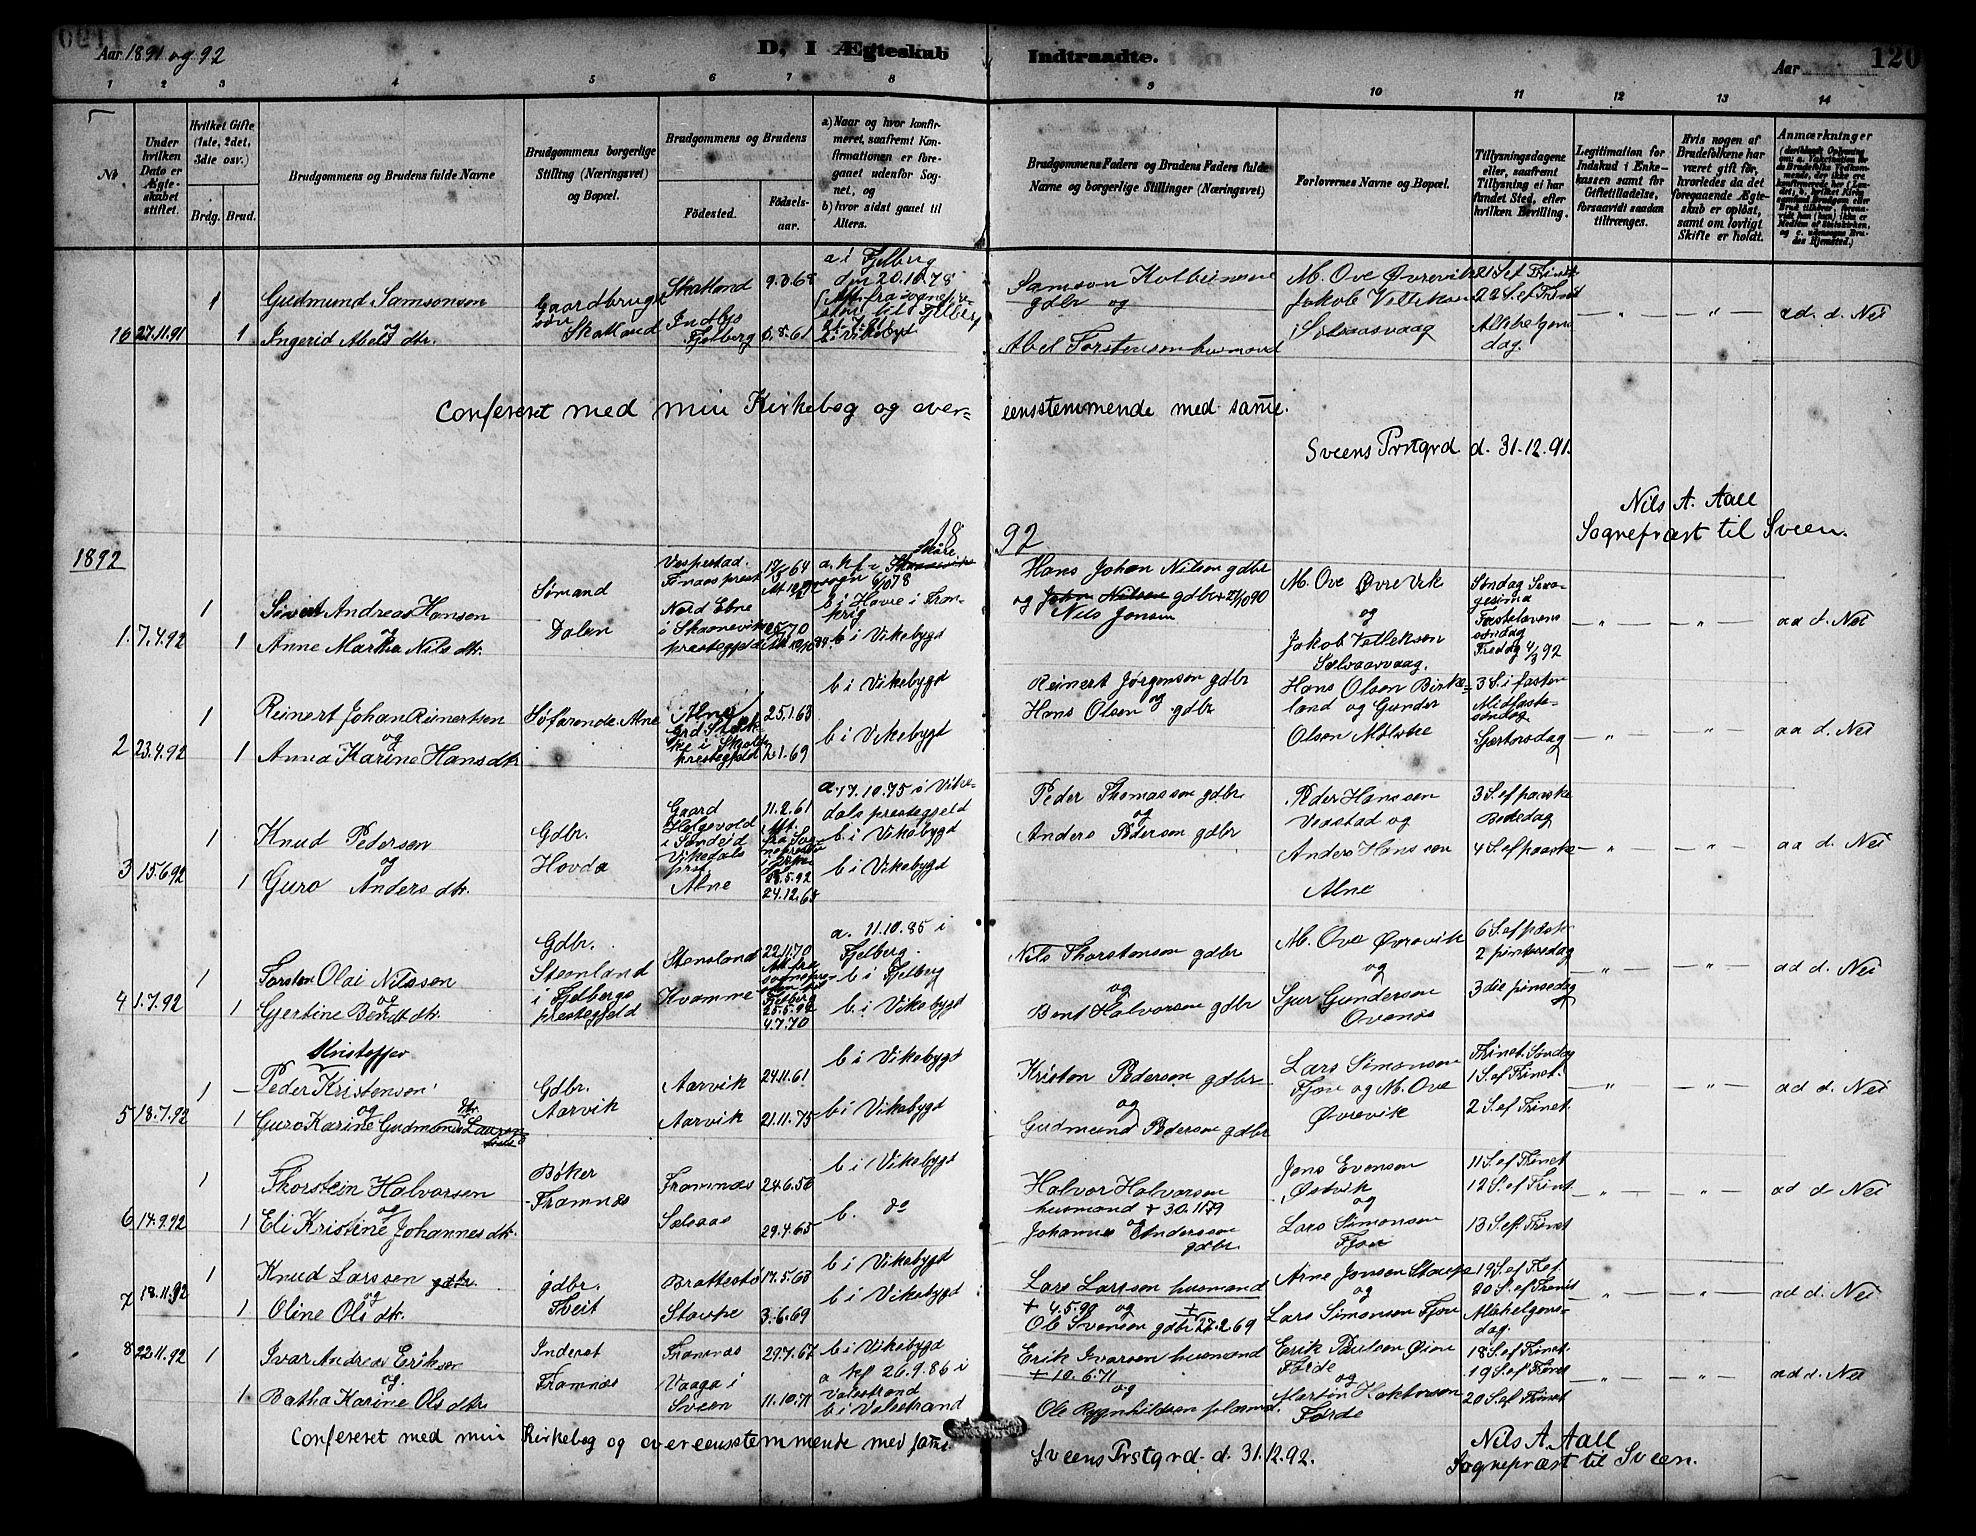 Aar 1891 og 92
D, I Ægteskab Indtraadte.
120
Aar
1 2 3 4 5 6 7 8 9 10 11 12 13 14
No
Under hvilken Dato er Ægteskabet stiftet.
Hvilket Gifte (1ste, 2det, 3die osv.)
Brdg. Brud.
Brudgommens og Brudens fulde Navne
Brudgommens borgerlige Stilling (Næringsvei) og Bopæl.
Brudgommens og Brudens
Födested.
Födsels-aar.
a) Naar og hvor konfirmeret, saafremt Konfirmationen er foregaaet udenfor Sognet, og
b) hvor sidst gaaet til Alters.
Brudgommens Faders og Brudens Faders fulde Navne og borgerlige Stillinger (Næringsvei)
Forlovernes Navne og Bopæl.
Tillysningsdagene eller, saafremt Tillysning ei har fundet Sted, efter hvilken Bevilling.
Legitimation for Indskud i Enkekassen samt for Giftetilladelse, forsaavidt saadan tiltrænges.
Hvis nogen af Brudefolkene har været gift för, hvorledes da det foregaaende Ægteskab er oplöst, samt om lovligt Skifte er holdt.
Anmærkninger
10 27.11.91 1 Gudmund Samsonsen
og
1 Ingerid Abels dtr.
Gaardbruger
Skatland
Skatland
Indbjo
Fjelberg 6.8.61
a i Fjelberg
den 20.10.78
b i Vikebygd
gdbr og
Abel Torstensen husmand
M. Ove Øvrevik
Jakob Vetleksen
21 S. ef Trinit
22 S. ef Trinit
Allehelgens
dag.
ad. d. Nei
Confereret med min Kirkebog og over= eensstemmende med samme.
Sveens Prstgrd d. 31.12.91.
Nils A. Aall
Sogneprest til Sveen.
1892
18 92
1. 7.4.92 1 Sivert Andreas Hansen
og
1 Anne Martha Nils dtr.
Sømand
Dalen
Vespestad.
Nord Ebne
i Skaanevik
prestegjeld
b i Vikebygd
Hans Johan Nilsen gdbr
Nils Jonsen
M. Ove Øvrevik
og
Jakob Vetleksen
Sælvaasvaag.
Søndag Sexa-
gesima
Fastelavens
søndag
Fredag 4/3 92
aa d. Nei
2 23.4.92 1 Reinert Johan Reinertsen
og
1 Anna Karine Hans dtr.
Søfarende. Alne
Alne 25.1.63
b i Vikebygd
b i Vikebygd
Reinert Jørgensen gdbr
og
Hans Olsen gdbr
Hans Olsen Birke=
land og Gunder
Olsen Mølstre
3 S. i fasten
Midfaste-
søndag
Skjærtorsdag
aa d. Nei
3 15.6.92 1 Knud Pedersen
og
1 Guro Anders dtr.
Gdbr.
Hovda
Gaard
Helgevold
i Sandeid
Vikedals
prst.
Alne
11.2.61
24.12.65
a. 17.10.75 i Vike-
dals prestegjeld
b. i Vikebygd
b i Vikebygd
Peder Thomassen gdbr
og
Anders Pedersen gdbr
Peder Hanssen
Veastad og
Anders Hanssen
Alne
3 S. ef paaske
Bededag
4 S. ef paaske
aa d. Nei
4 1.7.92 1 Torsten Olai Nilssen
og
1 Gjertine Bendt dtr.
Gdbr.
Steenland
i Fjelbergs
prestegjeld
Stensland
Kvamme
22.11.70
4.7.70
a. 11.10.85 i
Fjelberg.
b i Fjelberg
b i Vikebygd
Nils Thorstensen gdbr
og
Bent Halvorsen gdbr
M. Ove Øvrevik
og
Sjur Gundersen
Ovenes
6 S. ef paaske
2 pintsedag
3 die pinsedag
ad d. Nei
5 18.7.92 Kristoffer
1 Peder Kristensen
og
1 Guro Karine Gudmunds dtr.
Gdbr.
Aarvik
Aarvik 24.11.61
Aarvik 21.11.75
b i Vikebygd
b i Vikebygd
Kristen Pedersen gdbr
og
Gudmund Pedersen gdbr
Lars Simonsen
Fjon og M. Ove
Øvrevik
Trinet. Søndag
1 S. ef Trinet.
2 S. ef Trinet.
ad d. Nei
6 14.9.92 1 Thorstein Halvorsen
og
1 Eli Kristine Johannes dtr.
Bøker
Framnæs
Framnæs 24.6.56
Sælsaas 29.4.65
b i Vikebygd
b. do
Halvor Halvorsen
husmand + 30.11.79
og
Johannes Andersen
gdbr.
Jens Evensen
Østvik
og
Lars Simonsen
Fjon
11 S. ef Trinet
12 S. ef Trinet
13 S. ef. Trinet
ad d Nei
7 18.11.92 1 Knud Larssen gdbr.
og
1 Oline Ols dtr.
gdbr.
Tveit
Brattestø 17.5.63
Staupe 3.6.69
b i Vikebygd
b i Vikebygd
Lars Larssen husmand
+ 4.5.90 og +
Ole Svensen gdbr 27.2.69
Arne Jensen Staupe
og
Lars Simonsen Fjon
19 S. ef Tref.
20 S. ef Trinit
Allehelgens-
dag.
ad d. Nei
8 22.11.92 1 Ivar Andreas Eriksen
og.
1 Batha Karine Ols dtr.
Inderst
Framnæs
Framnæs 29.7.67
Vaaga i
Sveen 11.10.71
b i Vikebygd
a kf 26.9.86 i
Valestrand
b i Valestrand
Erik Ivarsen husmand
+ 10.6.71
og
Erik Paulsen Øien
Førde
og
Førde
18 S. ef Trinet.
19 S. ef Trinet
20 S. ef Trinet
ad d. Nei
Confereret med min Kirkebog og overeensstemmende med samme
Sveens Prstgrd. d. 31.12.92.
Nils A. Aall
Sogneprest til Sveen.